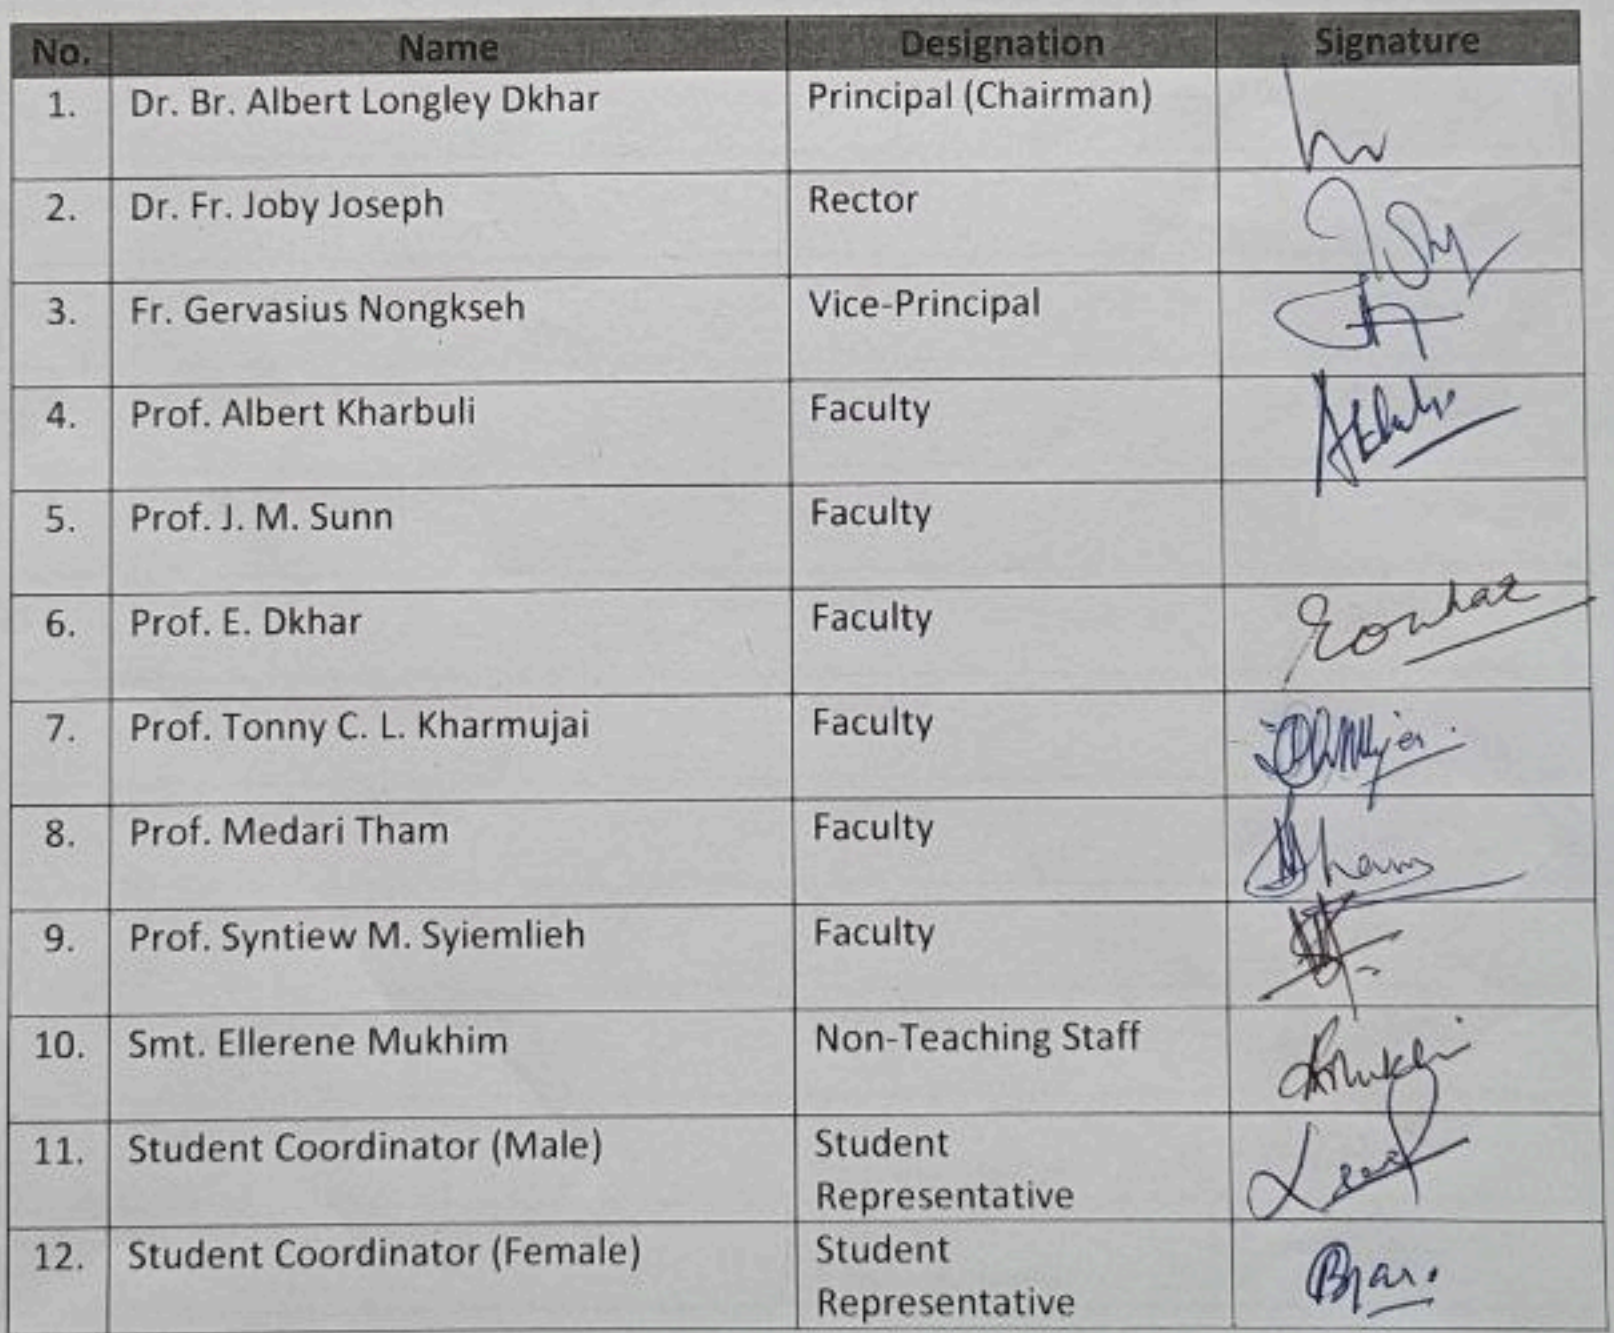 No. Name Designation Signature
1. Dr. Br. Albert Longley Dkhar Principal (Chairman)
2. Dr. Fr. Joby Joseph Rector Joby
3. Fr. Gervasius Nongkseh Vice-Principal
4. Prof. Albert Kharbuli Faculty
5. Prof. J. M. Sunn Faculty
6. Prof. E. Dkhar Faculty
7. Prof. Tonny C. L. Kharmujai Faculty
8. Prof. Medari Tham Faculty Tham
9. Prof. Syntiew M. Syiemlieh Faculty
10. Smt. Ellerene Mukhim Non-Teaching Staff
11. Student Coordinator (Male) Student
Representative
12. Student Coordinator (Female) Student
Representative